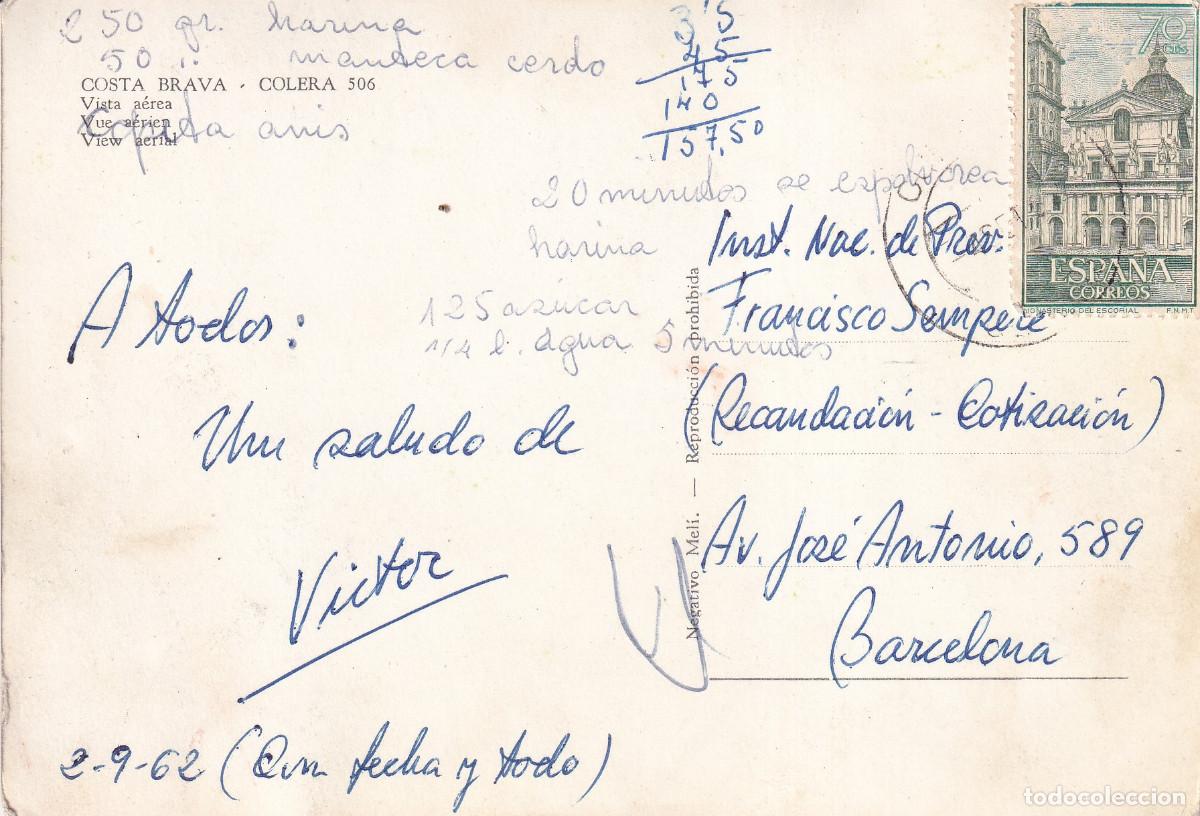 250 gr. harina
50 " manteca cerdo
COSTA BRAVA - COLERA 506
Vista aérea
Vue aérien
View aerial
copita anis
3'5
45
175
140
157,50
20 minutos se espolvorea
harina
125 azúcar
1/4 l. agua 5 minutos
A todos:
Un saludo de
Victor
2-9-62 (Con fecha y todo)
Negativo Melí. — Reproducción prohibida
70 CTS
ESPAÑA
CORREOS
MONASTERIO DEL ESCORIAL F.N.M.T.
Inst. Nac. de Prev.
Francisco Sempere
(Recaudación - Cotización)
Av. José Antonio, 589
Barcelona
todocoleccion